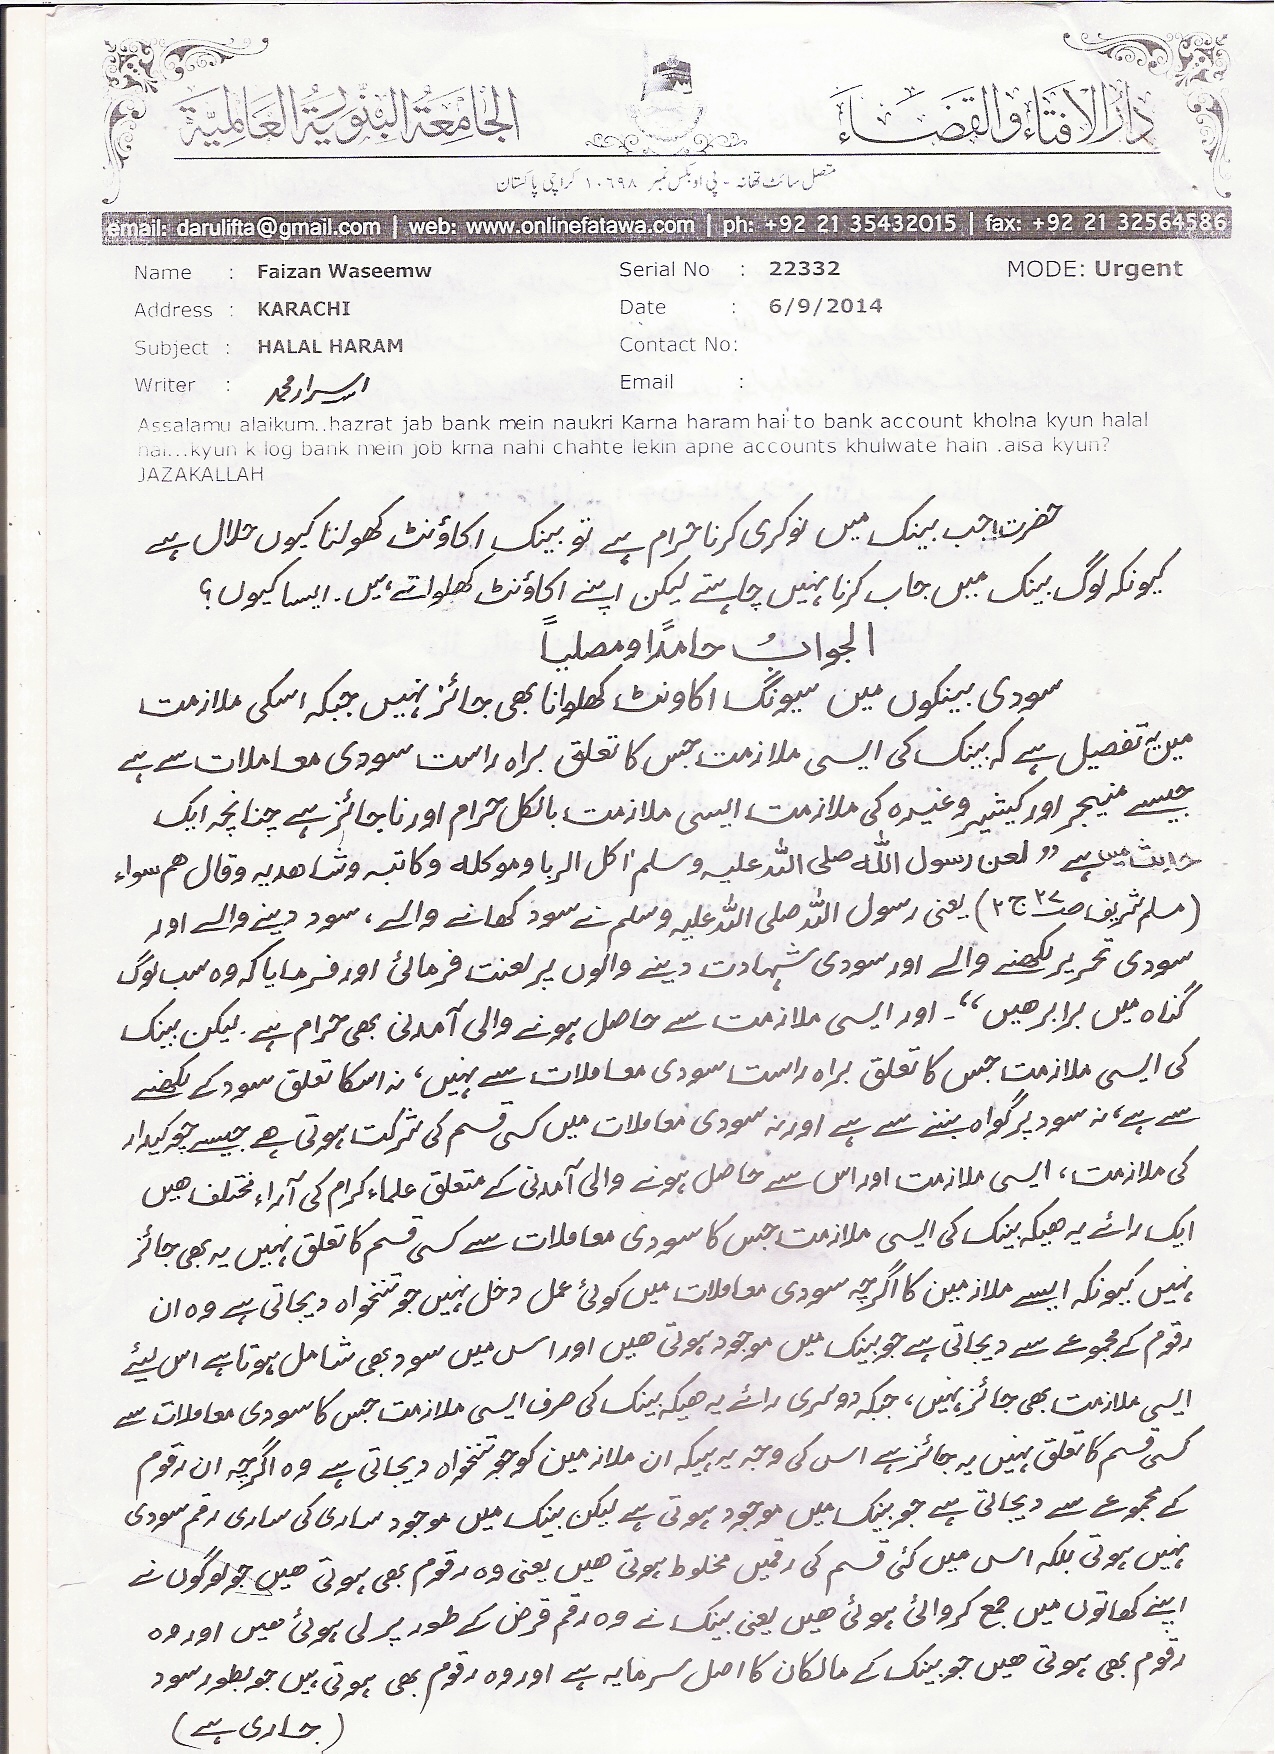 دارالافتاء والقضاء
الجامعة البنورية العالمية
متصل سائٹ تھانہ - پی او بکس نمبر ۱۰۶۹۸ کراچی پاکستان
email: darulifta@gmail.com | web: www.onlinefatawa.com | ph: +92 21 35432015 | fax: +92 21 32564586
Name : Faizan Waseemw Serial No : 22332 MODE: Urgent
Address : KARACHI Date : 6/9/2014
Subject : HALAL HARAM Contact No:
Writer : اسرار محمد Email :
Assalamu alaikum..hazrat jab bank mein naukri Karna haram hai to bank account kholna kyun halal
hai...kyun k log bank mein job krna nahi chahte lekin apne accounts khulwate hain .aisa kyun?
JAZAKALLAH
حضرت! جب بینک میں نوکری کرنا حرام ہے تو بینک اکاؤنٹ کھولنا کیوں حلال ہے
کیونکہ لوگ بینک میں جاب کرنا نہیں چاہتے لیکن اپنے اکاؤنٹ کھلواتے ہیں۔ ایسا کیوں؟
الجوابُ حامدًا ومصلیاً
سودی بینکوں میں سیونگ اکاونٹ کھلوانا بھی جائز نہیں جبکہ اسکی ملازمت
میں یہ تفصیل ہے کہ بینک کی ایسی ملازمت جس کا تعلق براہ راست سودی معاملات سے ہے
جیسے منیجر اور کیشیر وغیرہ کی ملازمت ایسی ملازمت بالکل حرام اور ناجائز ہے چنانچہ ایک
حدیث میں ہے ’’لعن رسول اللہ صلی اللہ علیہ وسلم اٰکل الربا وموکلہ وکاتبہ وشاھدیہ وقال ھم سواء
(مسلم شریف صـ۲۷ ج۲) یعنی رسول اللہ صلی اللہ علیہ وسلم نے سود کھانے والے، سود دینے والے اور
سودی تحریر لکھنے والے اور سودی شہادت دینے والوں پر لعنت فرمائی اور فرمایا کہ وہ سب لوگ
گناہ میں برابر ھیں‘‘۔ اور ایسی ملازمت سے حاصل ہونے والی آمدنی بھی حرام ہے۔ لیکن بینک
کی ایسی ملازمت جس کا تعلق براہ راست سودی معاملات سے نہیں، نہ اسکا تعلق سود کے لکھنے
سے ہے، نہ سود پر گواہ بننے سے ہے اور نہ سودی معاملات میں کسی قسم کی شرکت ہوتی ھے جیسے چوکیدار
کی ملازمت، ایسی ملازمت اور اس سے حاصل ہونے والی آمدنی کے متعلق علماء کرام کی آراء مختلف ھیں
ایک رائے یہ ھیکہ بینک کی ایسی ملازمت جس کا سودی معاملات سے کسی قسم کا تعلق نہیں یہ بھی جائز
نہیں کیونکہ ایسے ملازمین کا اگرچہ سودی معاملات میں کوئی عمل دخل نہیں جو تنخواہ دیجاتی ہے وہ ان
رقوم کے مجموعے سے دیجاتی ہے جو بینک میں موجود ہوتی ھیں اور اس میں سود بھی شامل ہوتا ہے اس لیئے
ایسی ملازمت بھی جائز نہیں، جبکہ دوسری رائے یہ ھیکہ بینک کی صرف ایسی ملازمت جس کا سودی معاملات سے
کسی قسم کا تعلق نہیں یہ جائز ہے اس کی وجہ یہ ہیکہ ان ملازمین کو جو تنخواہ دیجاتی ہے وہ اگرچہ ان رقوم
کے مجموعے سے دیجاتی ہے جو بینک میں موجود ہوتی ہے لیکن بینک میں موجود ساری کی ساری رقم سودی
نہیں ہوتی بلکہ اس میں کئی قسم کی رقمیں مخلوط ہوتی ھیں یعنی وہ رقوم بھی ہوتی ھیں جو لوگوں نے
اپنے کھاتوں میں جمع کروائی ہوئی ھیں یعنی بینک نے وہ رقم قرض کے طور پر لی ہوئی ھیں اور وہ
رقوم بھی ہوتی ھیں جو بینک کے مالکان کا اصل سرمایہ ہے اور وہ رقوم بھی ہوتی ہیں جو بطور سود
(جاری ہے)